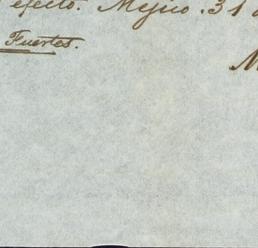 efecto. Mejico. 31
Fuertes.